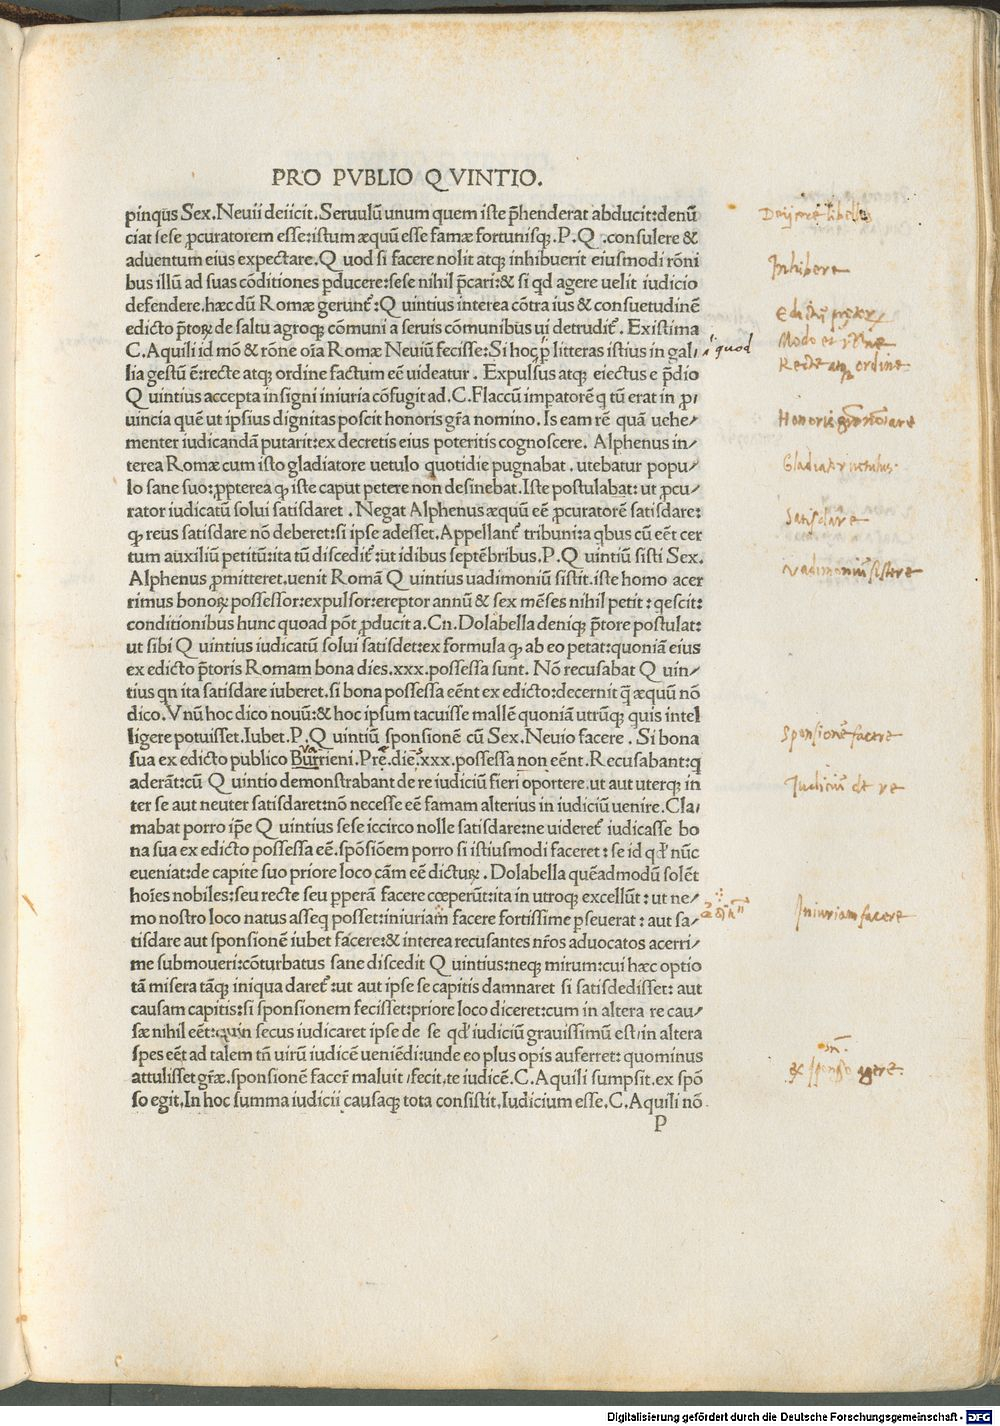 PRO PVBLIO QVINTIO.
pinqus Sex. Neuii deiicit. Seruulū unum quem iste p̄henderat abducit: denū
Deijcere libellos
ciat sese ꝓcuratorem esse: istum æquū esse famæ fortunisqꝫ. P. Q. consulere &
aduentum eius expectare. Q uod si facere nolit atqꝫ inhibuerit eiusmodi rōni
Inhibere
bus illū ad suas cōditiones ꝑducere: sese nihil p̄cari: & si qd agere uelit iudicio
defendere. hæc dū Romæ gerunt᷑: Q uintius interea cōtra ius & consuetudinē
edicto p̄toꝝ de saltu agroqꝫ cōmuni a seruis cōmunibus ui detrudit᷑. Existima
C. Aquili id mō & rōne oīa Romæ Neuiū fecisse: Si hoc ꝑ litteras istius in gal⸝
quod
Modo et rōne
lia gestū ē: recte atqꝫ ordine factum eē uideatur. Expulsus atqꝫ eiectus e p̄dio
Recte atqꝫ ordine
Q uintius accepta insigni iniuria cōfugit ad. C. Flaccū imperatorē q tū erat in ꝓ⸝
uincia quē ut ipsius dignitas poscit honoris gr̄a nomino. Is eam rē quā uehe⸝
menter iudicandā putarit: ex decretis eius poteritis cognoscere. Alphenus in⸝
terea Romæ cum isto gladiatore uetulo quotidie pugnabat. utebatur popu⸝
Gladiator uetulus.
lo sane suo: ꝓpterea qꝫ iste caput petere non desinebat. Iste postulabat: ut ꝓcu⸝
rator iudicatū solui satisdaret. Negat Alphenus æquū eē ꝓcuratorē satisdare:
Satisdare
qꝫ reus satisdare nō deberet: si ipse adesset. Appellant᷑ tribuni: a qbus cū eēt cer
tum auxiliū petitū: ita tū discedit᷑: ut idibus septēbribus. P. Q uintiū sisti Sex.
Alphenus ꝓmitteret. uenit Romā Q uintius uadimoniū sistit. iste homo acer
Vadimoniū sistere
rimus bonoꝝ possessor: expulsor: ereptor annū & sex mēses nihil petit: qescit:
conditionibus hunc quoad pōt ꝓducit a. Cn. Dolabella deniqꝫ p̄tore postulat:
ut sibi Q uintius iudicatū solui satisdet: ex formula qꝫ ab eo petat: quoniā eius
ex edicto p̄toris Romam bona dies. xxx. possessa sunt. Nō recusabat Q uin⸝
tius qn ita satisdare iuberet. si bona possessa eēnt ex edicto: decernit q̄ æquū nō
dico. Vnū hoc dico nouū: & hoc ipsum tacuisse mallē quoniā utrūqꝫ quis intel
ligere potuisset. Iubet. P. Q uintiū sponsionē cū Sex. Neuio facere. Si bona
Sponsionē facere
sua ex edicto publico Burrieni. Prē. dies. xxx. possessa non eēnt. Recusabant: q
aderāt: cū Q uintio demonstrabant de re iudiciū fieri oportere. ut aut uterqꝫ in
Iudiciū de re
ter se aut neuter satisdaret: nō necesse eē famam alterius in iudiciū uenire. Cla⸝
mabat porro ip̄e Q uintius sese iccirco nolle satisdare: ne uideret᷑ iudicasse bo
na sua ex edicto possessa eē. spōsiōem porro si istiusmodi faceret: se id qd' nūc
eueniat: de capite suo priore loco cām eē dicturꝫ. Dolabella quēadmodū solēt
hoīes nobiles: seu recte seu ꝑperā facere cœperūt: ita in utroqꝫ excellūt: ut ne⸝
mo nostro loco natus asseq posset: iniuriam facere fortissime ꝑseuerat: aut sa⸝
Iniuriam facere
tisdare aut sponsionē iubet facere: & interea recusantes nr̄os aduocatos acerri⸝
me submoueri: cōturbatus sane discedit Q uintius: neqꝫ mirum: cui hæc optio
tā misera tāqꝫ iniqua daret᷑: ut aut ipse se capitis damnaret si satisdedisset: aut
causam capitis: si sponsionem fecisset: priore loco diceret: cum in altera re cau⸝
sæ nihil eēt: quin secus iudicaret ipse de se qd' iudiciū grauissimū est⸝ in altera
spes eēt ad talem tū uirū iudicē ueniēdi: unde eo plus opis auferret: quominus
ex sponso agere.
attulisset gr̄æ. sponsionē facer̄ maluit⸝ fecit, te iudicē. C. Aquili sumpsit. ex spō
so egit, In hoc summa iudicii causaqꝫ tota consistit, Iudicium esse, C. Aquili nō
P
Digitalisierung gefördert durch die Deutsche Forschungsgemeinschaft - DFG